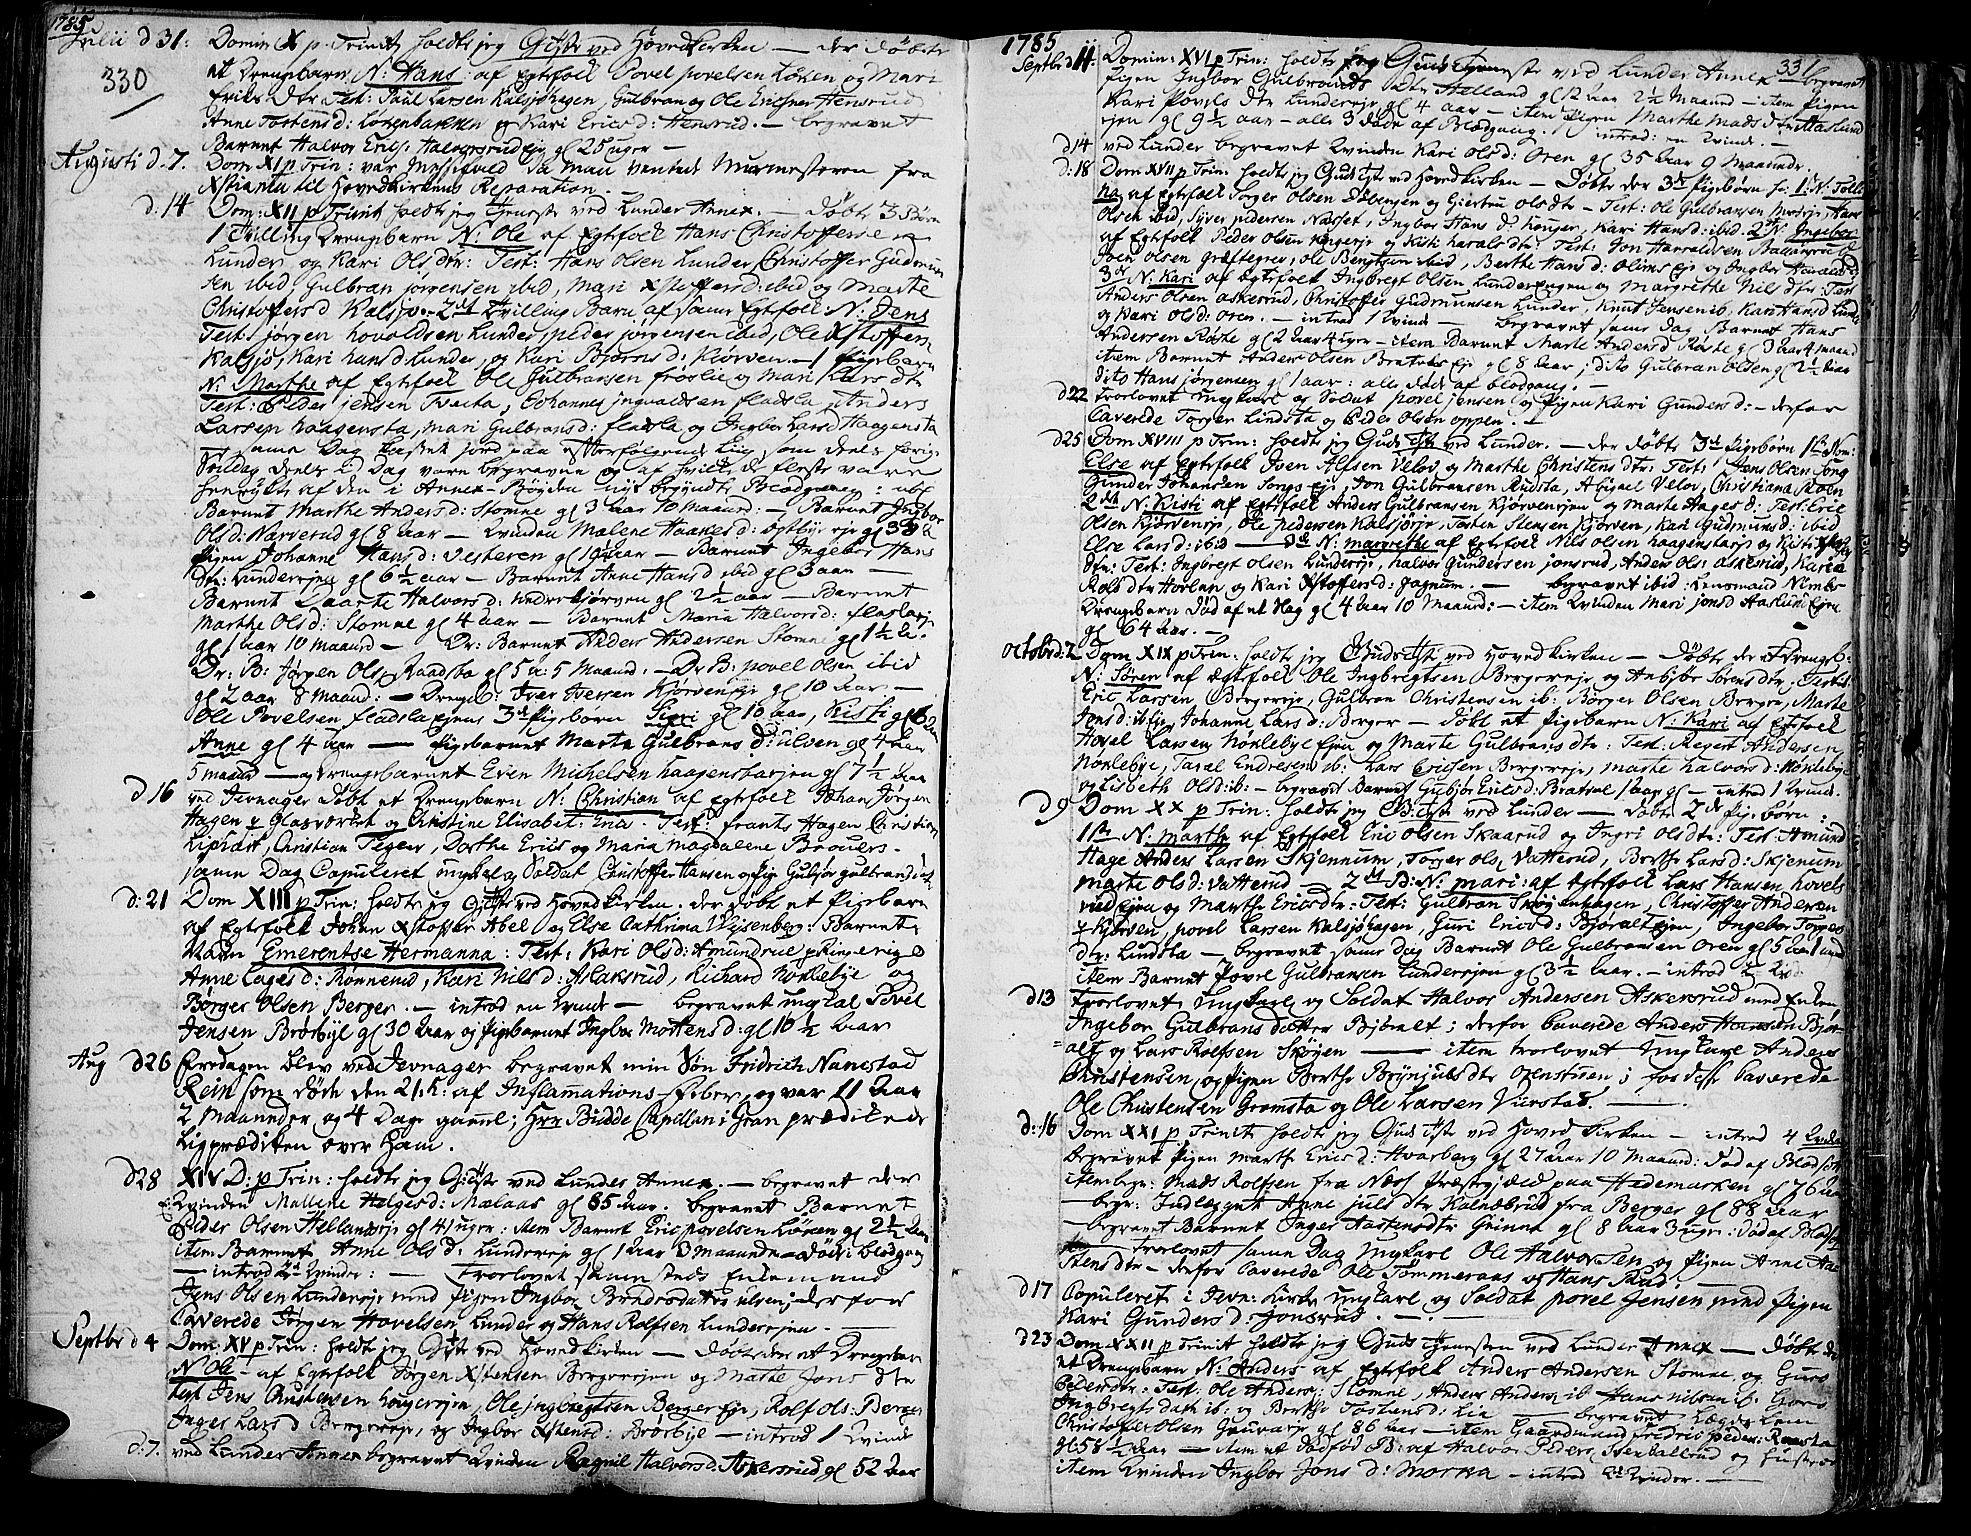 1785
Julii d 31: Domin X p. Trinit holdte jeg Giste ved Hovedkirken — der döbte
330
et Drengebarn N: Hans: af Egtefolk Povel povelsen Loken og Mari
Erics Dtr Test: Paul Larsen Kalsjöhagen, Gulbran og Ole Ericsen Hensrud
Anne Tostensd: Lökenbakken og Kari Ericsd: Hensrud. — begravet
Barnet Halvor Erics: Halvorsrudejej gl 25 uger —
Augusti d. 7. Dom XI p Trin: var Messefald da man ventede Murmesteren fra
Xstiania til Hovedkirkens Reparation. —
d. 14 Dom: XII p Trinit holdte jeg Tjeneste ved Lunder Annex. — Döbte 3 Börn
1 Tvilling Drengebarn N: Ole af Egtefolk Hans Christoffersen
Lunder og Kari Olsdtr: Test: Hans Olsen Lunder, Christoffer Gudmun
sen ibid, Gulbran jörgensen ibid, Mari Xstoffersd: ibid og Marte
Christoffersd Kalsjö. — 2det Tvilling Barn af samme Egtefolk: N: Jens
Test: jörgen hovoldsen Lunder, peder jörgensen ibid, Ole Xstoffersen
Kalsjö, Kari hansd Lunder, og Kari Björnsd: Kiörven. — 1 Pigebarn
N: Marthe af Egtefolk Ole Gulbransen fröslie og Mari Lars dtr
Test: Peder jensen Tveta, Johannes ingvaldsen fladsla, Anders
Larsen haagensta, Mari Gulbransd: fladsla og Ingebor Larsd Haagensta
— samme Dag kastet jord paa efterfölgende Liig, som deels forrige
Söndag deels i Dag vare begravne og af hvilke de fleste vare
henrykte af den i Annex-Bögden nyt begyndte Blodgang:
Barnet Marthe Andersd: Stomne gl 3 aar 10 Maaned: — Barnet Ingebor
Olsd: Narverud gl 8 aar — Qvinden Malene Haakensd: Östbye eje gl 38
Pigen Johanne Hansd: Vesteren gl 19 aar — Barnet Ingebor Hans
Dtr: Lunderejen gl 6½ aar — Barnet Anne Hansd ibid gl 3 aar —
Barnet Marte Halvorsd: nederkjörven gl 2½ aar — Barnet
Marthe Olsd: Stomne gl 4 aar — Barnet Maria Halvorsd: fladslaeje
gl 1 aar 10 maaned — Dr: Barnet Anders Andersen Stomne gl 1½ A.
Dr: B: Jörgen Ols: Raadsta gl 5 a: 5 Maaned. — Dr B: povel Olsen ibid
gl 2 aar 8 Maaned: — Drengeb: Iver Iversen Kjörvenseje gl 10 Aar —
Ole Povelsen fladsla ejens 3de Pigebörn Sigri gl 10 aar, Kisti gl 6 aar
Anne gl 4 aar — Pigebarnet Marta Gulbrans d: ulven gl 4 aar
5 maaned — og Drengebarnet Even Michelsen haagenstaejen gl 7½ Aar
d 16 ved Jevnager döbt et Drengebarn N: Christian af Egtefolk Johan Jörgen
Hagen p Glasværket og Christine Elisabet: Erics. Test: frants Hagen, Christian
Lipfart, Christian Teger, Dorthe Erics og Maria Magdalene Brouers.
samme Dag Copuleret ungkarl og Soldat Christoffer Hansen og Pig Gubjör gulbrandsd
d: 21 Dom XIII p Trin: holdte jeg Giste ved Hovedkirken. der döbt et Pigebarn
af Egtefolk Johan Xstoffer Abel og Else Cathrina Weisenberg: Barnets
Navn Emerentse Hermanna: Test: Kari Olsd: Amundrud p Ringerige
Anne Lagesd: Rönnerud, Kari Nilsd: Aslaksrud, Richard Nöklebye og
Börger Olsen Berger. — introd en Qvinde — begravet ungkarl Povel
Jensen Brörbye gl 30 Aar og Pigebarnet Ingebor Mortensd: gl 10½ Aar
Aug d 26 Fredagen blev ved Jevnager begravet min Sön Fridrich Nannestad
Rein som döde den 21de: af Inflamations-Feber, og var 11 Aar
2 Maaneder og 4 Dage gammel; Hrr Budde Capellan i Gran prædikede
Ligprædiken over ham.
d 28 XIV D: p Trin: holdte jeg Giste ved Lunder Annex. — begravet der
Qvinden Mallene Helgesd: Mælaas gl 85 Aar. begravet Barnet
Peder Olsen Hellandseje gl 4 uger: item Barnet Eric povelsen Lören gl 2½ Aar
item Barnet Anne Olsd: Lundereje gl 1 Aar 3 maaneder döde i blodgang
— introd 2de Qvinder: — Trorlovet samme steds Enkemand
Jens Olsen Lundereje med Pigen Ingebor Brendesdatter ulsen; derfore
Caverede Jörgen Hovelsen Lunder og Hans Rolfsen Lunderejen. —
Septbr d 4 Dom: XV p Trin: holdt jeg Giste ved Hovedkirken — döbte der et Drengebarn
N: Ole — af Egtefolk Jörgen Xstensen Bergerejen og Marte Jons dtr
test Jens Christensen Lougerejen, Ole ingbregtsen Berger eje, Rolf Ols: Berger
Inger Lars d Bergereje, og Ingebor Xstensd: Brörbye — introd 1 Qvinde
d. 7. ved Lunder Annex begravet Qvinden Ragnil Halvorsd: Askersrud gl 52 Aar
1785
331
Septbr d 11: Domin: XVI p Trin: holdt jeg Guds Tjeneste ved Lunder Annex begravet
Pigen Ingebor Gulbrands datter Helland gl 12 Aar 2½ Maaned — item Pigen
Kari Povels dtr Lundereje gl 4 aar — item Pigen Marthe Mads dtr Haslund
ejen gl 9½ aar — alle 3 döde af Blodgang. introd: en Qvinde.
d 14 ved Lunder begravet Qvinden Kari Olsd: Oren gl 35 Aar 9 Maaneder.
d: 18 Dom XVII p Trin: holdt jeg Guds Tste ved Hovedkirken — Döbte der 3de Pigebörn 1te N: Tolle
na af Egtefolk Torger Olsen Döbengen og Giertru Olsdtr — Test: Ole Gulbransen Moseje, Hans
Olsen ibid, Syver pedersen Næsset, Ingebor Hans d: Kouger, Kari Hansd: ibid. 2 N: Ingebor
af Egtefolk Peder Olsen Kagereje og Kisti haraldsdtr. Test: Jon Haraldsen Ballangrud
Joen Olsen græftegrev, Ole Bengtsen ibid, Berthe Hansd: Olims eje og Ingebor Haraldsd
3die N: Kari af Egtefolk Ingebregt Olsen Lunderengen og Margrethe Nils dtr: Test
Anders Olsen askerud, Christoffer Gudmunsen Lunder, Knut Jensen ib, Kari Hansd Lunder
og Kari Olsd: Oren. — introd 1 Qvinde — begravet samme Dag Barnet Hans
Andersen Röste gl 2 Aar 4 uger — item Barnet Marte Andersd Röste gl 3 Aar 4 maaned
item Barnet Anders Olsen Bratvals eje gl 8 aar, dito Gulbran Olsen gl 2½ Aar
dito Hans jörgensen gl 1 aar: alle döde af blodgang. —
d 22 Trorlovet ungkarl og Soldat povel jensen og Pigen Kari Gundersd: — derfor
Caverede Torger Lindsta og Peder Olsen oppen. —
d 25 Dom XVIII p Trin: holdt jeg Guds Tste ved Lunder. — der döbte 3de Pigebörn 1te Nom:
Else af Egtefolk Iven Alfsen Velov og Marthe Christens dtr: Test: Jens Olsen Song
Gunder Johansen Songs eje, Jon Gulbransen Rudsta, Abigael Velov, Christiana Moen
2det N: Kisti af Egtefolk Anders Gulbransen Kjörvensejen og Marte Hages d: Test: Eric
Olsen Kjörvenseje, Ole pedersen Kalsjöeje, Tosten Stensen Kjörven, Kari Gudmunsd: ibid
Else Larsd: ibid — 3die N: Margrethe af Egtefolk Nils Olsen haagenstaeje og Kisti Xstoffers
dtr: Test: Ingbregt Olsen Lundereje, halvor Gundersen jonsrud, Anders Ols: askerud, Karen
Rolsdtr Hovland og Kari Xstoffersd: Jagnum. — begravet ibid: Lensmand Nimbs
Drengebarn död af et Slag gl 4 aar 10 Maaned: — item Qvinden Mari jonsd Haslund Ejen
gl 64 Aar. —
octobr d: 2 Dom XIX p Trin: holdt jeg Guds Tste ved Hovedkirken — Döbte der et Drengeb:
N: Sören af Egtefolk Ole Ingbregtsen Bergereje og Anbjör Sörens dtr, Test:
Eric Larsen Bergereje, Gulbran Christensen ib: Börger Olsen Berger, Marthe
Jonsd: ib eje, Johanne Lars d: Berger — döbt et Pigebarn N: Kari af Egtefolk
Hovel Larsen Nöklebye Ejen og Marte Gulbrans dtr: Test: Regert Andersen
Nöklebye, Taral Endresen ib. Lars Ericsen Bergereje, Marthe halvorsd: Nöklebye
og Lisbeth Olsd: ib: — begravet Barnet Gubjör Ericsd: Bratval 1 aar gl — introd 1 Qvinde.
d 9 Dom XX p Trin: holdt jeg G Tjeste ved Lunder — döbte 2de Pigebörn:
1te N: Marthe af Egtefolk Eric Olsen Skaarud og Ingri Olsdtr: Test: Amund
Hage Anders Larsen Skjennum, Torger Ols: Vatterud, Berthe Larsd: Skjenum
Marte Olsd: Vatterud 2det B: N: Mari: af Egtefolk Lars Hansen hovels
rud Ejen og Marthe Ericsdtr: Test: Gulbran Sköjenhagen, Christoffer Andersen
Kjörven, povel Larsen Kalsjöhagen, Guri Ericsd: Björaltejen, Ingebor Torges
dtr: Lindsta — begravet samme dag Barnet Ole Gulbransen Oren gl 5 Aar 1 uge
item Barnet Povel Gulbransen Lunderejen gl 3½ Aar. — introd 2 Qvinder
d 13 Trorlovet ungkarl og Soldat Halvor Andersen Askersrud med Enken
Ingebor Gulbrans datter Björalt; derfor Caverede Anders Hansen Björ-
alt og Lars Rolfsen Sköjen — item trorlovet Ungkarl Anders
Christensen og Pigen Berthe Brynjulsdtr Orenstuen; for disse Caverede
Ole Christensen Gromsta og Ole Larsen Viirstad. —
d: 16 Dom XXI p Trinit: holdt jeg Guds Tste ved Hoved Kirken — introd 4 Qvinder
begravet Pigen Marthe Erics d: Hvarberg gl 27 aar 10 Maaned: död af Blodsot
item begr: Mads Rolfsen fra Næss Præstegield paa Hedemarken gl 76 aar
— begr: Indlægget Anne juls dtr Kalnæbrud fra Berger gl 88 Aar
— begravet Barnet Inger Aastensdtr: Grinna gl 8 Aar 3 uger: död af Blodsot
— trorlovet samme Dag Ungkarl Ole Halvorsen og Pigen Anne Aa
stens dtr — derfor Caverede Ole Tömmeraas og Hans Rud.
d 17 Copuleret i Jevn: Kirke Ungkarl og Soldat povel Jensen med Pigen
Kari Gunders d: Jonsrud. —
d 23 Dom: XXII p Trinit holdt jeg Guds Tjenesten ved Lunder Annex — Döbt der
et Drengebarn N: Anders af Egtefolk Anders Andersen Stomne, og Guro
Pedersdtr: Test: Ole Anders: Stomne, Anders Anders: ib Hans Nilsen ib: Goro
Ingbregts datt ib: og Berthe Tostensd: Lia — begravet Lægdslem
Christoffer Olsen Gouvareje gl 86 Aar — item Gaardmand Fredric peders: Raasta
gl 58½ Aar — item et dödföd B: af Halvor Peders: og Hustrue
item Qvinden Ingebor Jons d: Morka — introd 2de Qvinder. —